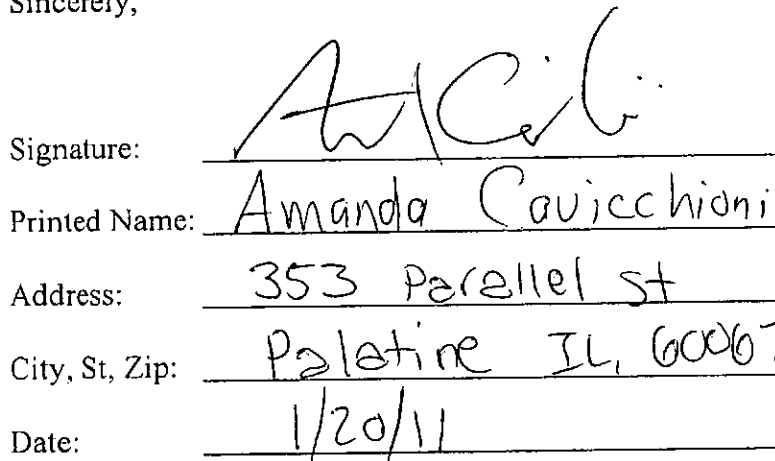 Sincerely,
Signature:
Printed Name: Amanda Cavicchioni
Address: 353 Parallel St
City, St, Zip: Palatine IL, 60067
Date: 1/20/11